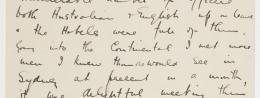 both Australian & English up on leave
& the Hotels were full of them,
Going into the Continental I met more
men I knew than would see in
Sydney at present in a month,
it was delightful meeting them